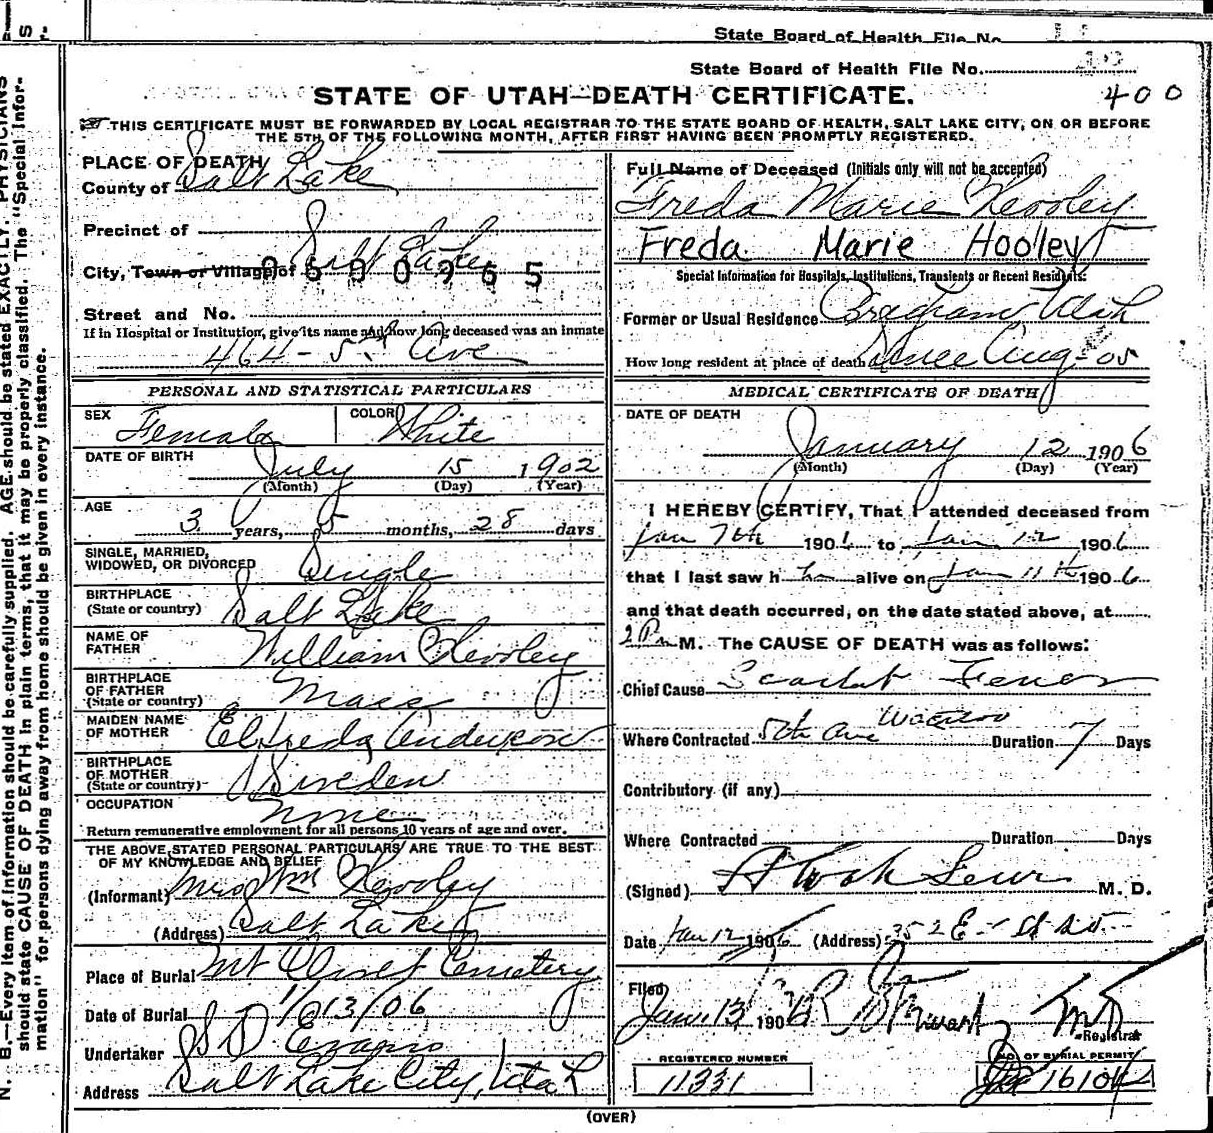 State Board of Health File No.
State Board of Health File No.
STATE OF UTAH—DEATH CERTIFICATE.
400
THIS CERTIFICATE MUST BE FORWARDED BY LOCAL REGISTRAR TO THE STATE BOARD OF HEALTH, SALT LAKE CITY, ON OR BEFORE
THE 5TH OF THE FOLLOWING MONTH, AFTER FIRST HAVING BEEN PROMPTLY REGISTERED.
PLACE OF DEATH
County of Salt Lake
Precinct of
City, Town or Village of Salt Lake
Street and No.
If in Hospital or Institution, give its name and how long deceased was an inmate
464 - 5th Ave
PERSONAL AND STATISTICAL PARTICULARS
SEX Female COLOR White
DATE OF BIRTH July 15 1902
(Month) (Day) (Year)
AGE
3 years, 5 months, 28 days
SINGLE, MARRIED,
WIDOWED, OR DIVORCED Single
BIRTHPLACE
(State or country) Salt Lake
NAME OF
FATHER William Hooley
BIRTHPLACE
OF FATHER
(State or country) Mass
MAIDEN NAME
OF MOTHER Elfreda Anderson
BIRTHPLACE
OF MOTHER
(State or country) Sweden
OCCUPATION None
Return remunerative employment for all persons 10 years of age and over.
THE ABOVE STATED PERSONAL PARTICULARS ARE TRUE TO THE BEST
OF MY KNOWLEDGE AND BELIEF
(Informant) Mrs Wm Hooley
(Address) Salt Lake
Place of Burial Mt Olivet Cemetery
Date of Burial 1/13/06
Undertaker S D Evans
Address Salt Lake City, Utah
Full Name of Deceased (Initials only will not be accepted)
Freda Marie Hooley
Freda Marie Hooley
Special Information for Hospitals, Institutions, Transients or Recent Residents:
Former or Usual Residence Bingham Utah
How long resident at place of death Since Aug - 05
MEDICAL CERTIFICATE OF DEATH
DATE OF DEATH
January 12 1906
(Month) (Day) (Year)
I HEREBY CERTIFY, That I attended deceased from
Jan 7th 1906 to Jan 12 1906
that I last saw her alive on Jan 11th 1906
and that death occurred, on the date stated above, at
2 P M. The CAUSE OF DEATH was as follows:
Chief Cause Scarlet Fever
Where Contracted 5th Ave Duration 7 Days
Contributory (if any)
Where Contracted Duration Days
(Signed) M. D.
Date Jan 12 1906 (Address) 352 E
Filed
Jan. 13 1906 M D
Registrar
REGISTERED NUMBER
11331
NO. OF BURIAL PERMIT
(OVER)
N. B.—Every item of information should be carefully supplied. AGE should be stated EXACTLY. PHYSICIANS
should state CAUSE OF DEATH in plain terms, that it may be properly classified. The "Special Infor-
mation" for persons dying away from home should be given in every instance.